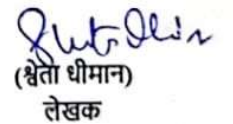 (श्वेता धीमान)
लेखक